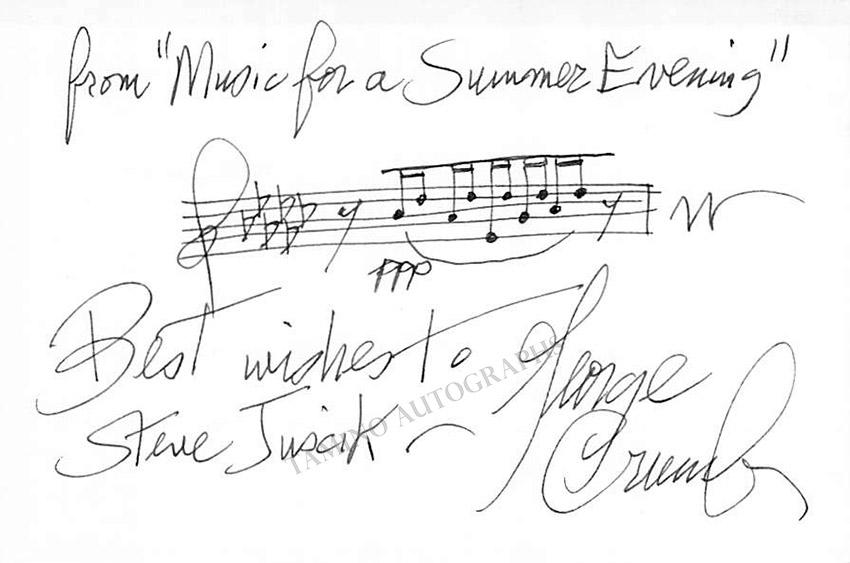 from "Music for a Summer Evening"
ppp
Best wishes to
Steve Jusick —
George
Crumb
TAMINO AUTOGRAPHS